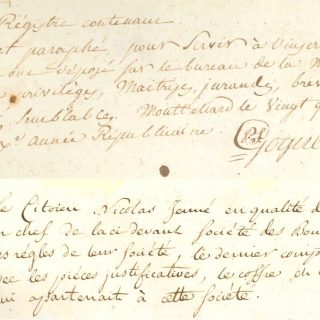 Régistre contenant
et paraphé, pour servir à l'inser
ont déposé sur le bureau de la M
privilèges, Maitrise, jurande, brev
Semblables. Montbéliard le Vingt q
année Républicaine.
Le Citoien Nicolas Jenné en qualité d
n chef de la ci devant Société des Bou
s régles de leur Société, le dernier comp
vec les pièces justificatives, le coffre, en
ui appartenait à cette Société.